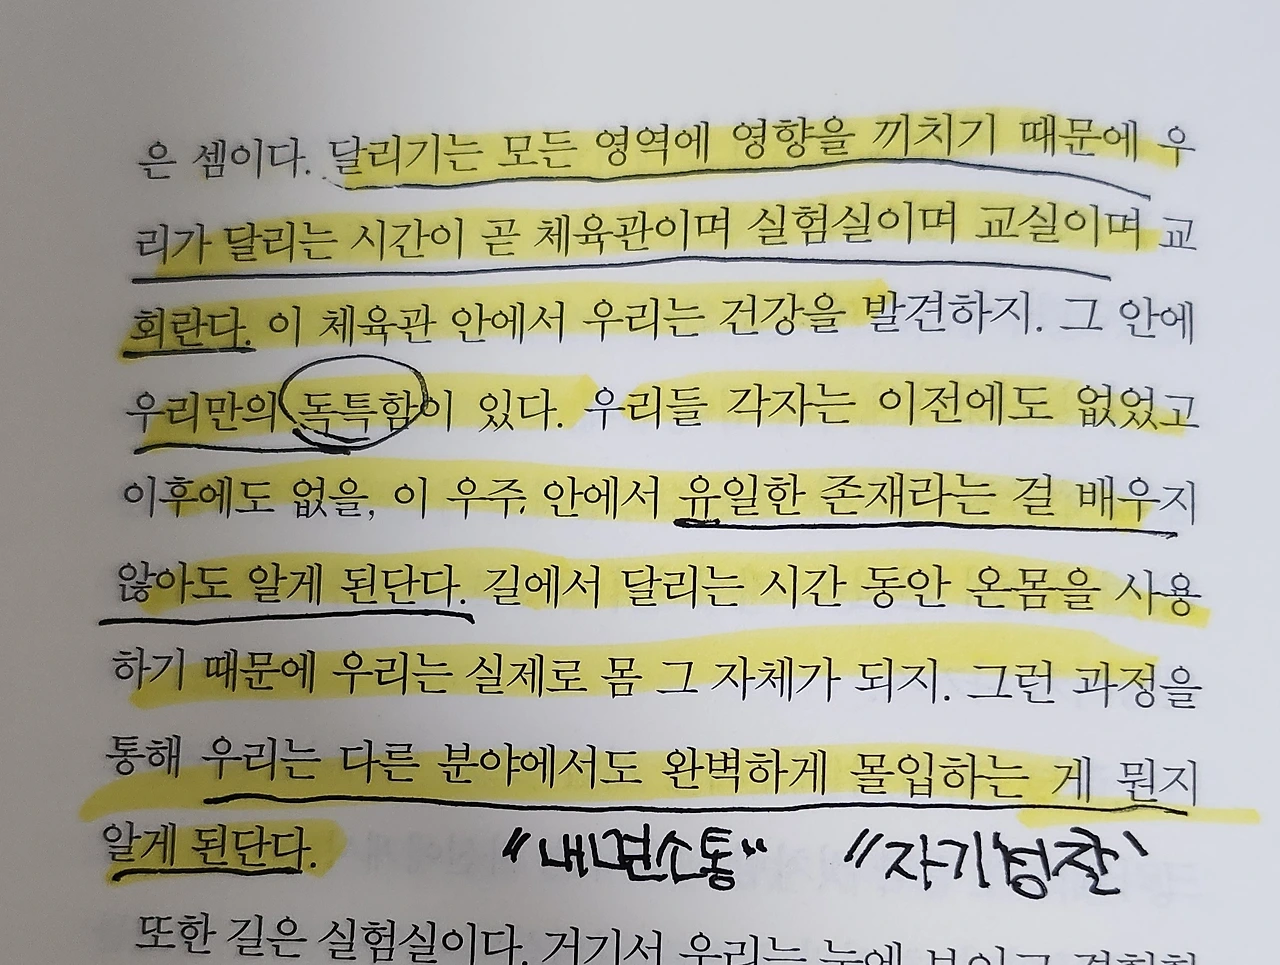 은 셈이다. 달리기는 모든 영역에 영향을 끼치기 때문에 우
리가 달리는 시간이 곧 체육관이며 실험실이며 교실이며 교
회란다. 이 체육관 안에서 우리는 건강을 발견하지. 그 안에
우리만의 독특함이 있다. 우리들 각자는 이전에도 없었고
이후에도 없을, 이 우주 안에서 유일한 존재라는 걸 배우지
않아도 알게 된단다. 길에서 달리는 시간 동안 온몸을 사용
하기 때문에 우리는 실제로 몸 그 자체가 되지. 그런 과정을
통해 우리는 다른 분야에서도 완벽하게 몰입하는 게 뭔지
알게 된단다. "내면소통" "자기성찰"
또한 길은 실험실이다. 거기서 우리는